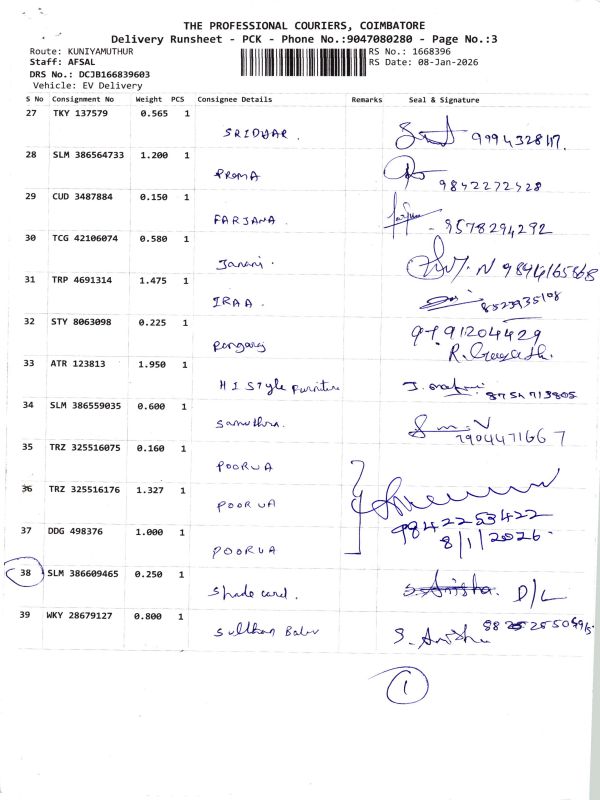 THE PROFESSIONAL COURIERS, COIMBATORE
Delivery Runsheet - PCK - Phone No.:9047080280 - Page No.:3
Route: KUNIYAMUTHUR RS No.: 1668396
Staff: AFSAL RS Date: 08-Jan-2026
DRS No.: DCJB166839603
Vehicle: EV Delivery
S No Consignment No Weight PCS Consignee Details Remarks Seal & Signature
27 TKY 137579 0.565 1
SRIDHAR.
28 SLM 386564733 1.200 1
PREMA 9842272528
29 CUD 3487884 0.150 1
FARJANA. 9578294292
30 TCG 42106074 0.580 1
Janani.
31 TRP 4691314 1.475 1
IRAA. 8523935108
32 STY 8063098 0.225 1
9791204429
Rengaraj
33 ATR 123813 1.950 1
HI Style Furniture
34 SLM 386559035 0.600 1
7904471667
35 TRZ 325516075 0.160 1
POORVA
36 TRZ 325516176 1.327 1
POORVA
9842253422
37 DDG 498376 1.000 1
8/1/2026.
POORVA
38 SLM 386609465 0.250 1
Shade card. S. Anisha. D/L
39 WKY 28679127 0.800 1
Sulthan Babu S. Anisha
1